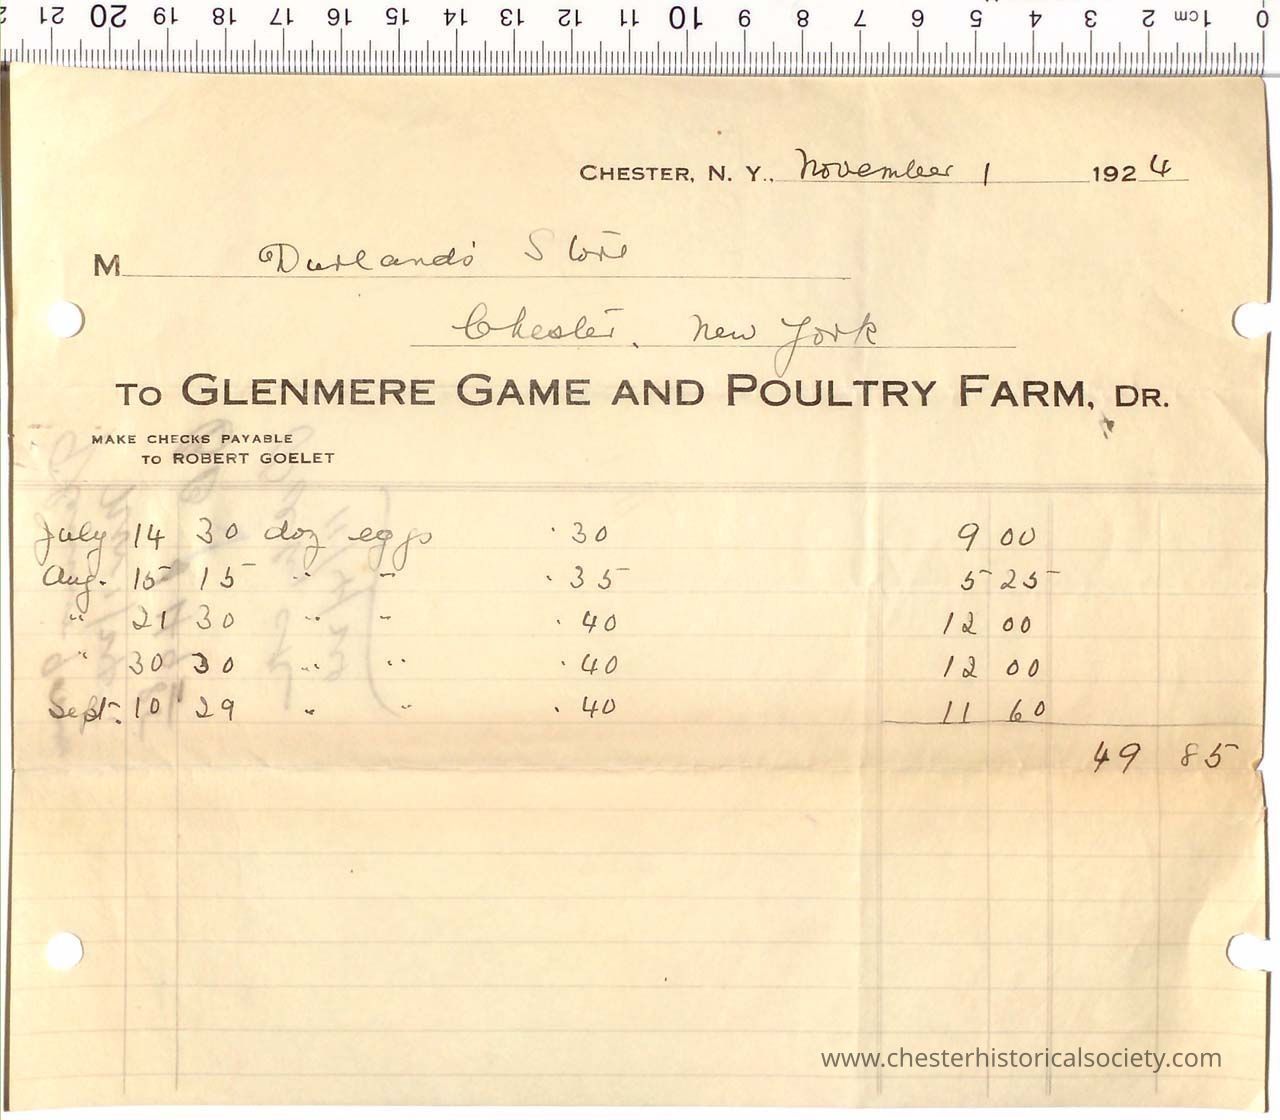 21 20 19 18 17 16 15 14 13 12 11 10 9 8 7 6 5 4 3 2 1cm 0
CHESTER, N. Y., November 1 1924
M Durland's Store
Chester, New York
TO GLENMERE GAME AND POULTRY FARM, DR.
MAKE CHECKS PAYABLE
TO ROBERT GOELET
July 14 30 doz eggs .30 9 00
Aug. 15 15 " " .35 5 25
" 21 30 " " .40 12 00
" 30 30 " " .40 12 00
Sept. 10 29 " " .40 11 60
49 85
www.chesterhistoricalsociety.com